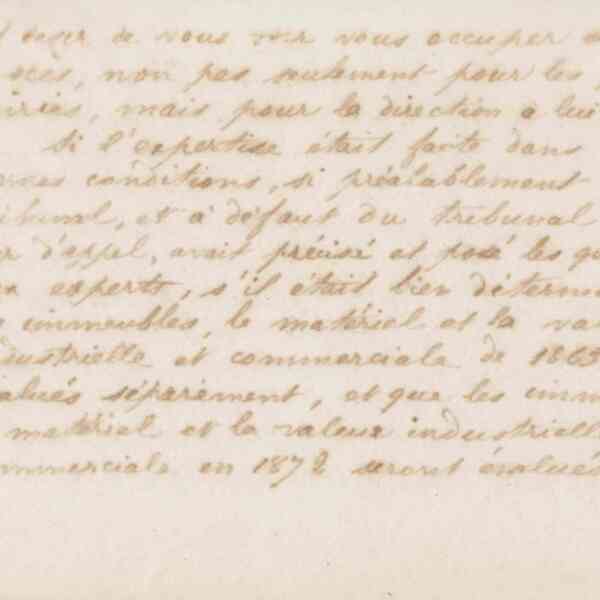 de vous voir vous occuper
non pas seulement pour les
mais pour la direction a lui
si l'expertise était faite dans
conditions, si préalablement
et à défaut du tribunal
d'appel, avait précisé et posé les
experts, s'il était bien
immeubles, le matériel et la
et commerciale de 1865
séparément, et que les
matériel et la valeur industrielle
en 1872 seront évalués